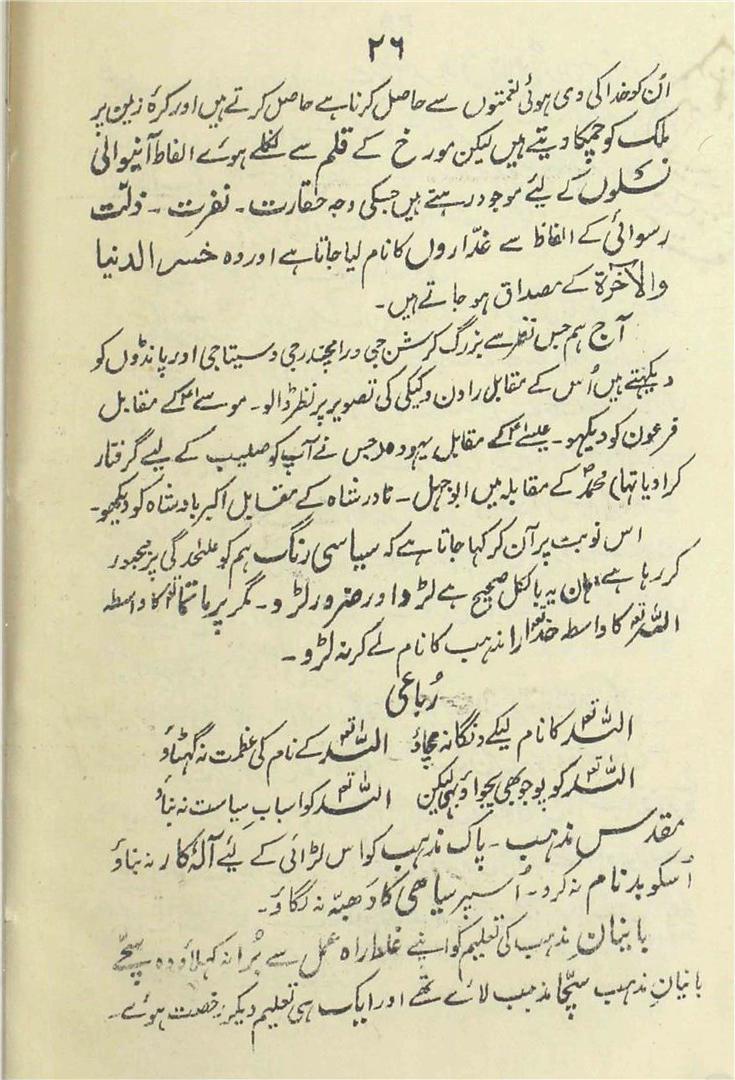 ۲۶
اُن کو خدا کی دی ہوئی نعمتوں سے حاصل کرنا ہے حاصل کرتے ہیں اور کرۂ زمین پر
ملک کو چمکا دیتے ہیں لیکن مورخ کے قلم سے نکلے ہوئے الفاظ آنیوالی
نسلوں کے لئے موجود رہتے ہیں جسکی وجہ حقارت۔ نفرت۔ ذلّت
رسوائی کے الفاظ سے غدّاروں کا نام لیا جاتا ہے اور وہ خسر الدنیا
والآخرۃ کے مصداق ہو جاتے ہیں۔
آج ہم جس نظر سے بزرگ کرشن جی و رامچندر جی و سیتا جی اور پانڈوں کو
دیکہتے ہیں اُس کے مقابل راون و کیکی کی تصویر پر نظر ڈالو۔ موسےٰؑ کے مقابل
فرعون کو دیکہو۔ عیسےٰؑ کے مقابل یہودہ (جس نے آپ کو صلیب کے لیے گرفتار
کرا دیا تہا) محمدؐ کے مقابلہ میں ابوجہل۔ نادر شاہ کے مقابل اکبر بادشاہ کو دیکھو۔
اس نوبت پر آن کر کہا جاتا ہے کہ سیاسی رنگ ہم کو علٰحدگی پر مجبور
کر رہا ہے۔ ہان یہ بالکل صحیح ہے لڑو اور ضرور لڑو۔ مگر پرماتما کا واسطہ
اللہ تعہ کا واسطہ خدا را مذہب کا نام لے کر نہ لڑو۔
رُباعی
اللہ تعہ کا نام لیکے دنگا نہ مچاؤ اللہ تعہ کے نام کی عظمت نہ گہٹاؤ
اللہ تعہ کو پوجو بھی پجواؤ بہی لیکن اللہ تعہ کو اسبابِ سیاست نہ بناؤ
مقدس مذہب۔ پاک مذہب کو اس لڑائی کے لیئے آلۂ کار نہ بناؤ
اُسکو بدنام نہ کرو۔ اُسپر سیاھی کا دَھبّہ نہ لگاؤ۔
بانیان مذہب کی تعلیم کو اپنے غلط راہ عمل سے بُرا نہ کہلاؤ وہ سچّے
بانیانِ مذہب سچّا مذہب لائے تھے اور ایک ہی تعلیم دیکر رخصت ہوئے۔